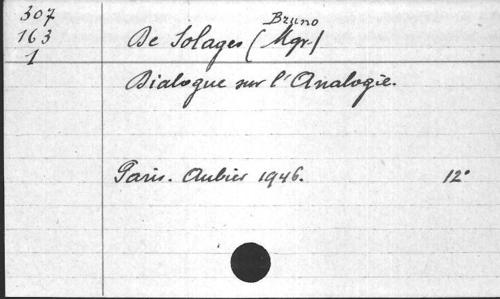 307
163
1
Bruno
De Solages (Mgr.)
Dialogue sur l'Analogie.
Paris. Aubier 1946. 12°